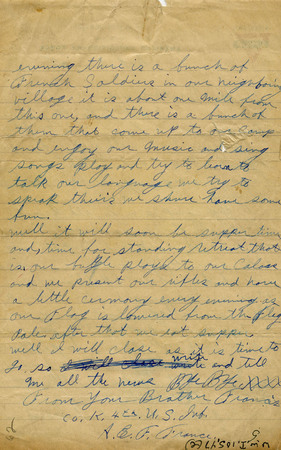 evening there is a bunch of
French Soldiers in our neighboring
village it is about one mile from
this one, and there is a bunch of
them that come up to our camp
and enjoy our music and sing
songs play and try to learn to
talk our language we try to
speak theirs we shure have some
fun.
well it will soon be supper time
and, time for standing retreat that
is our bugle plays to our Colors
and we present our rifles and have
a little cermony every evening as
our Flag is lowered from the Flag
Pole. after that we eat supper
well I will close as it is time to
Go. so write and tell
me all the news Bye Bye XXXX
From Your Brother Francis
Co. K. 4th U.S. Inf.
A.E.F. France